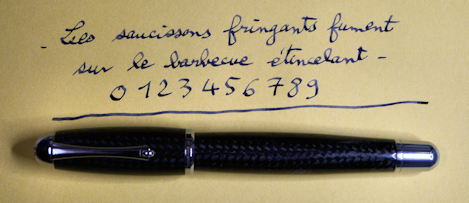 - Les saucissons fringants fument
sur le barbecue étincelant -
0 1 2 3 4 5 6 7 8 9